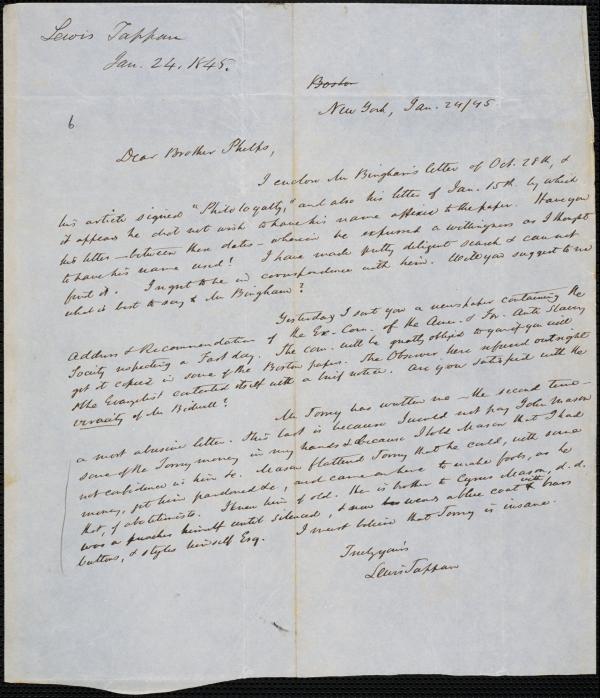 Lewis Tappan
Jan. 24. 1845.
Boston
New York, Jan. 24/45
6
Dear Brother Phelps,
I enclose Mr Bingham's letter of Oct. 28th, &
his article signed "Philo loyalty," and also his letter of Jan. 15th by which
it appears he did not wish to have his name affixed to the paper. Have you
his letter - between these dates - wherein he expressed a willingness as I thought
to have his name used? I have made pretty diligent search & can not
find it. I regret to be in correspondence with him. Will you suggest to me
what is best to say to Mr Bingham?
Yesterday I sent you a newspaper containing the
Address & Recommendation of the Ex. Com. of the Amer. & For. Anti Slavery
Society respecting a Fast day. The com. will be greatly obliged to you if you will
get it copied in some of the Boston papers. The Observer here refused outright
& the Evangelist contented itself with a brief notice. Are you satisfied with the
veracity of Mr Bidwell?
Mr Torrey has written me - the second time -
a most abusive letter. This last is because I would not pay John Mason
some of the Torrey money in my hands & because I told Mason that I had
not confidence in him &c. Mason flattered Torrey that he could, with some
money, get him pardoned &c, and came on here to make fools, as he
thot, of abolitionists. I knew him of old. He is brother to Cyrus Mason, d.d.
was a preacher himself until silenced, & now wears a blue coat with brass
buttons, & styles himself Esq. I must believe that Torrey is insane.
Truly yours
Lewis Tappan